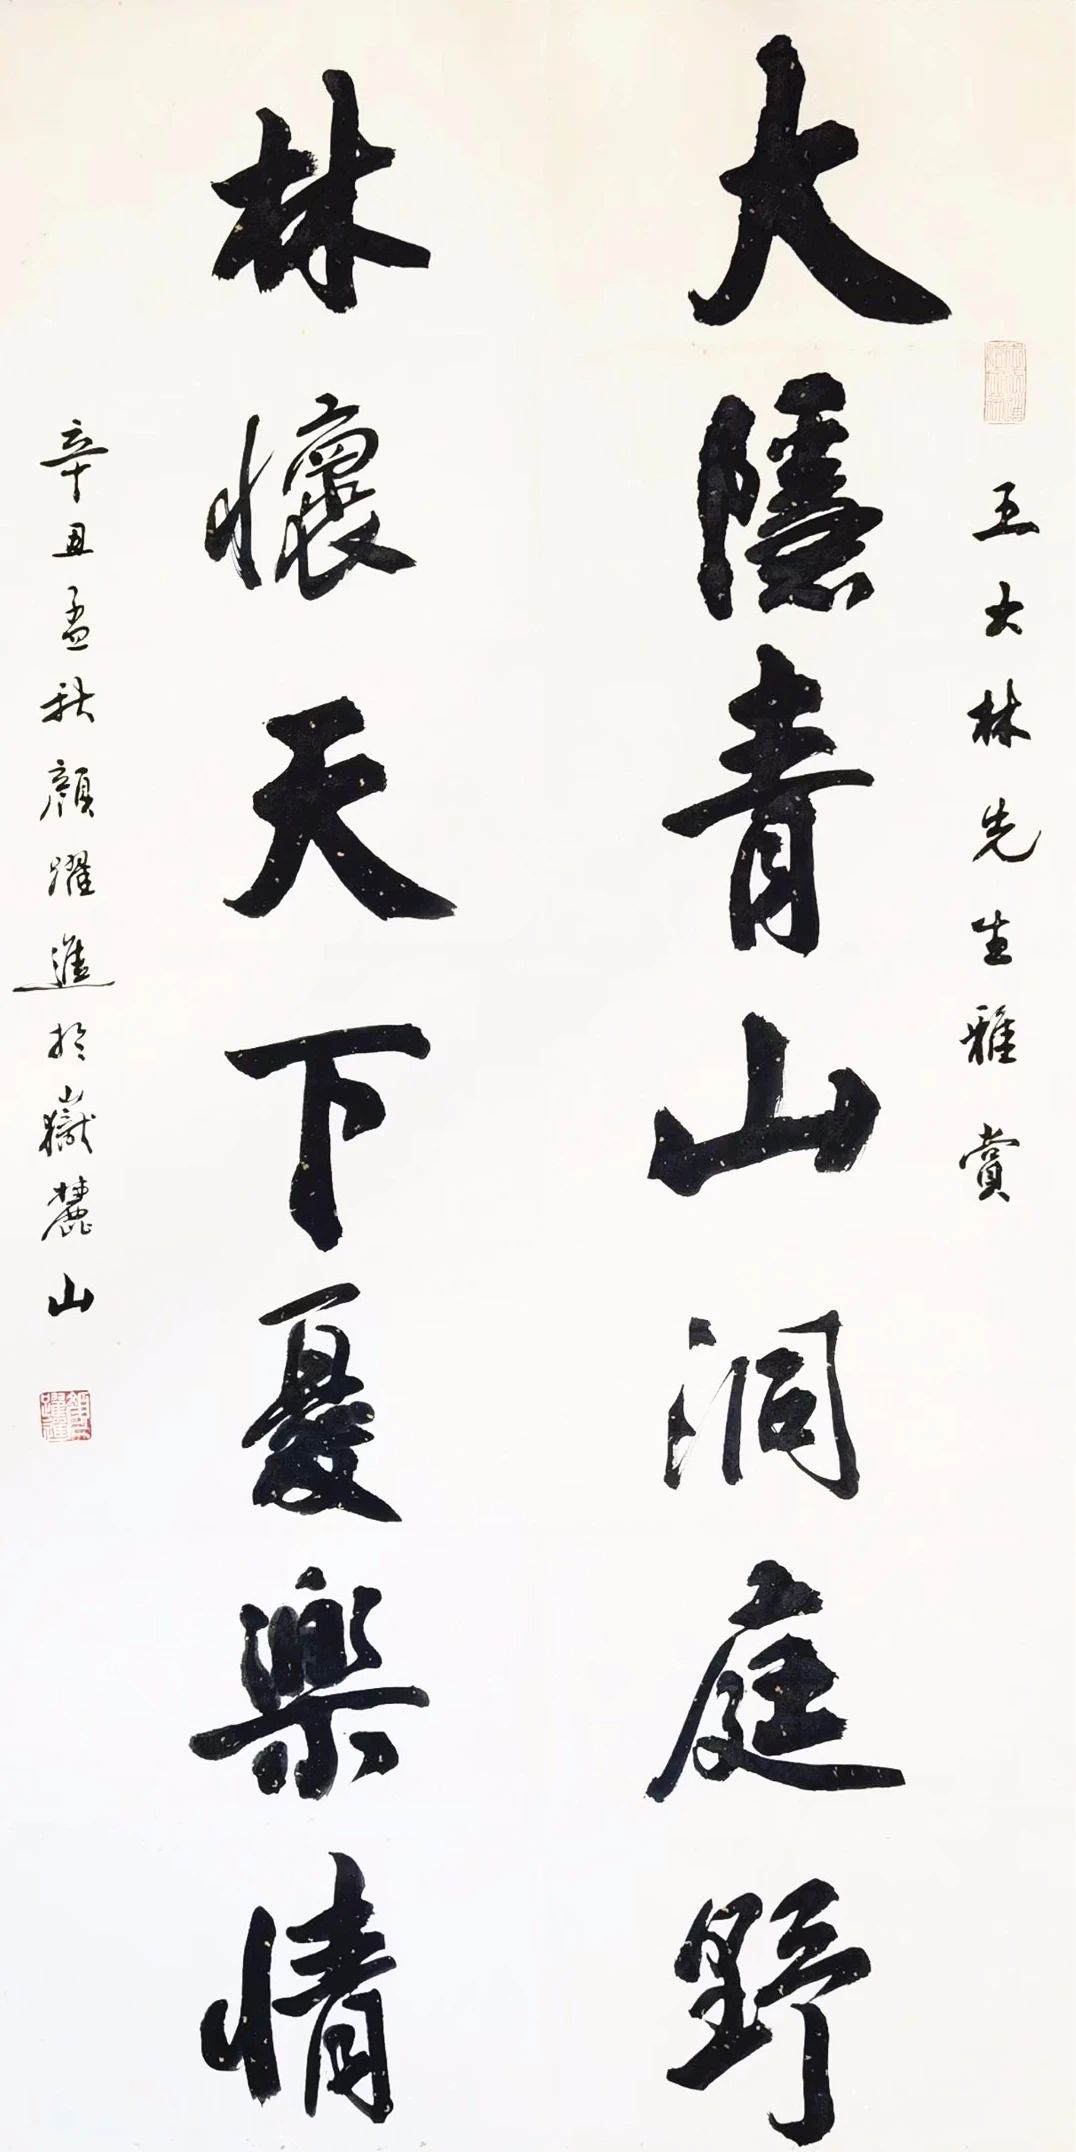 王大林先生雅賞
大隱青山洞庭野
林懷天下憂樂情
辛丑孟秋顏躍進於嶽麓山
顏躍進